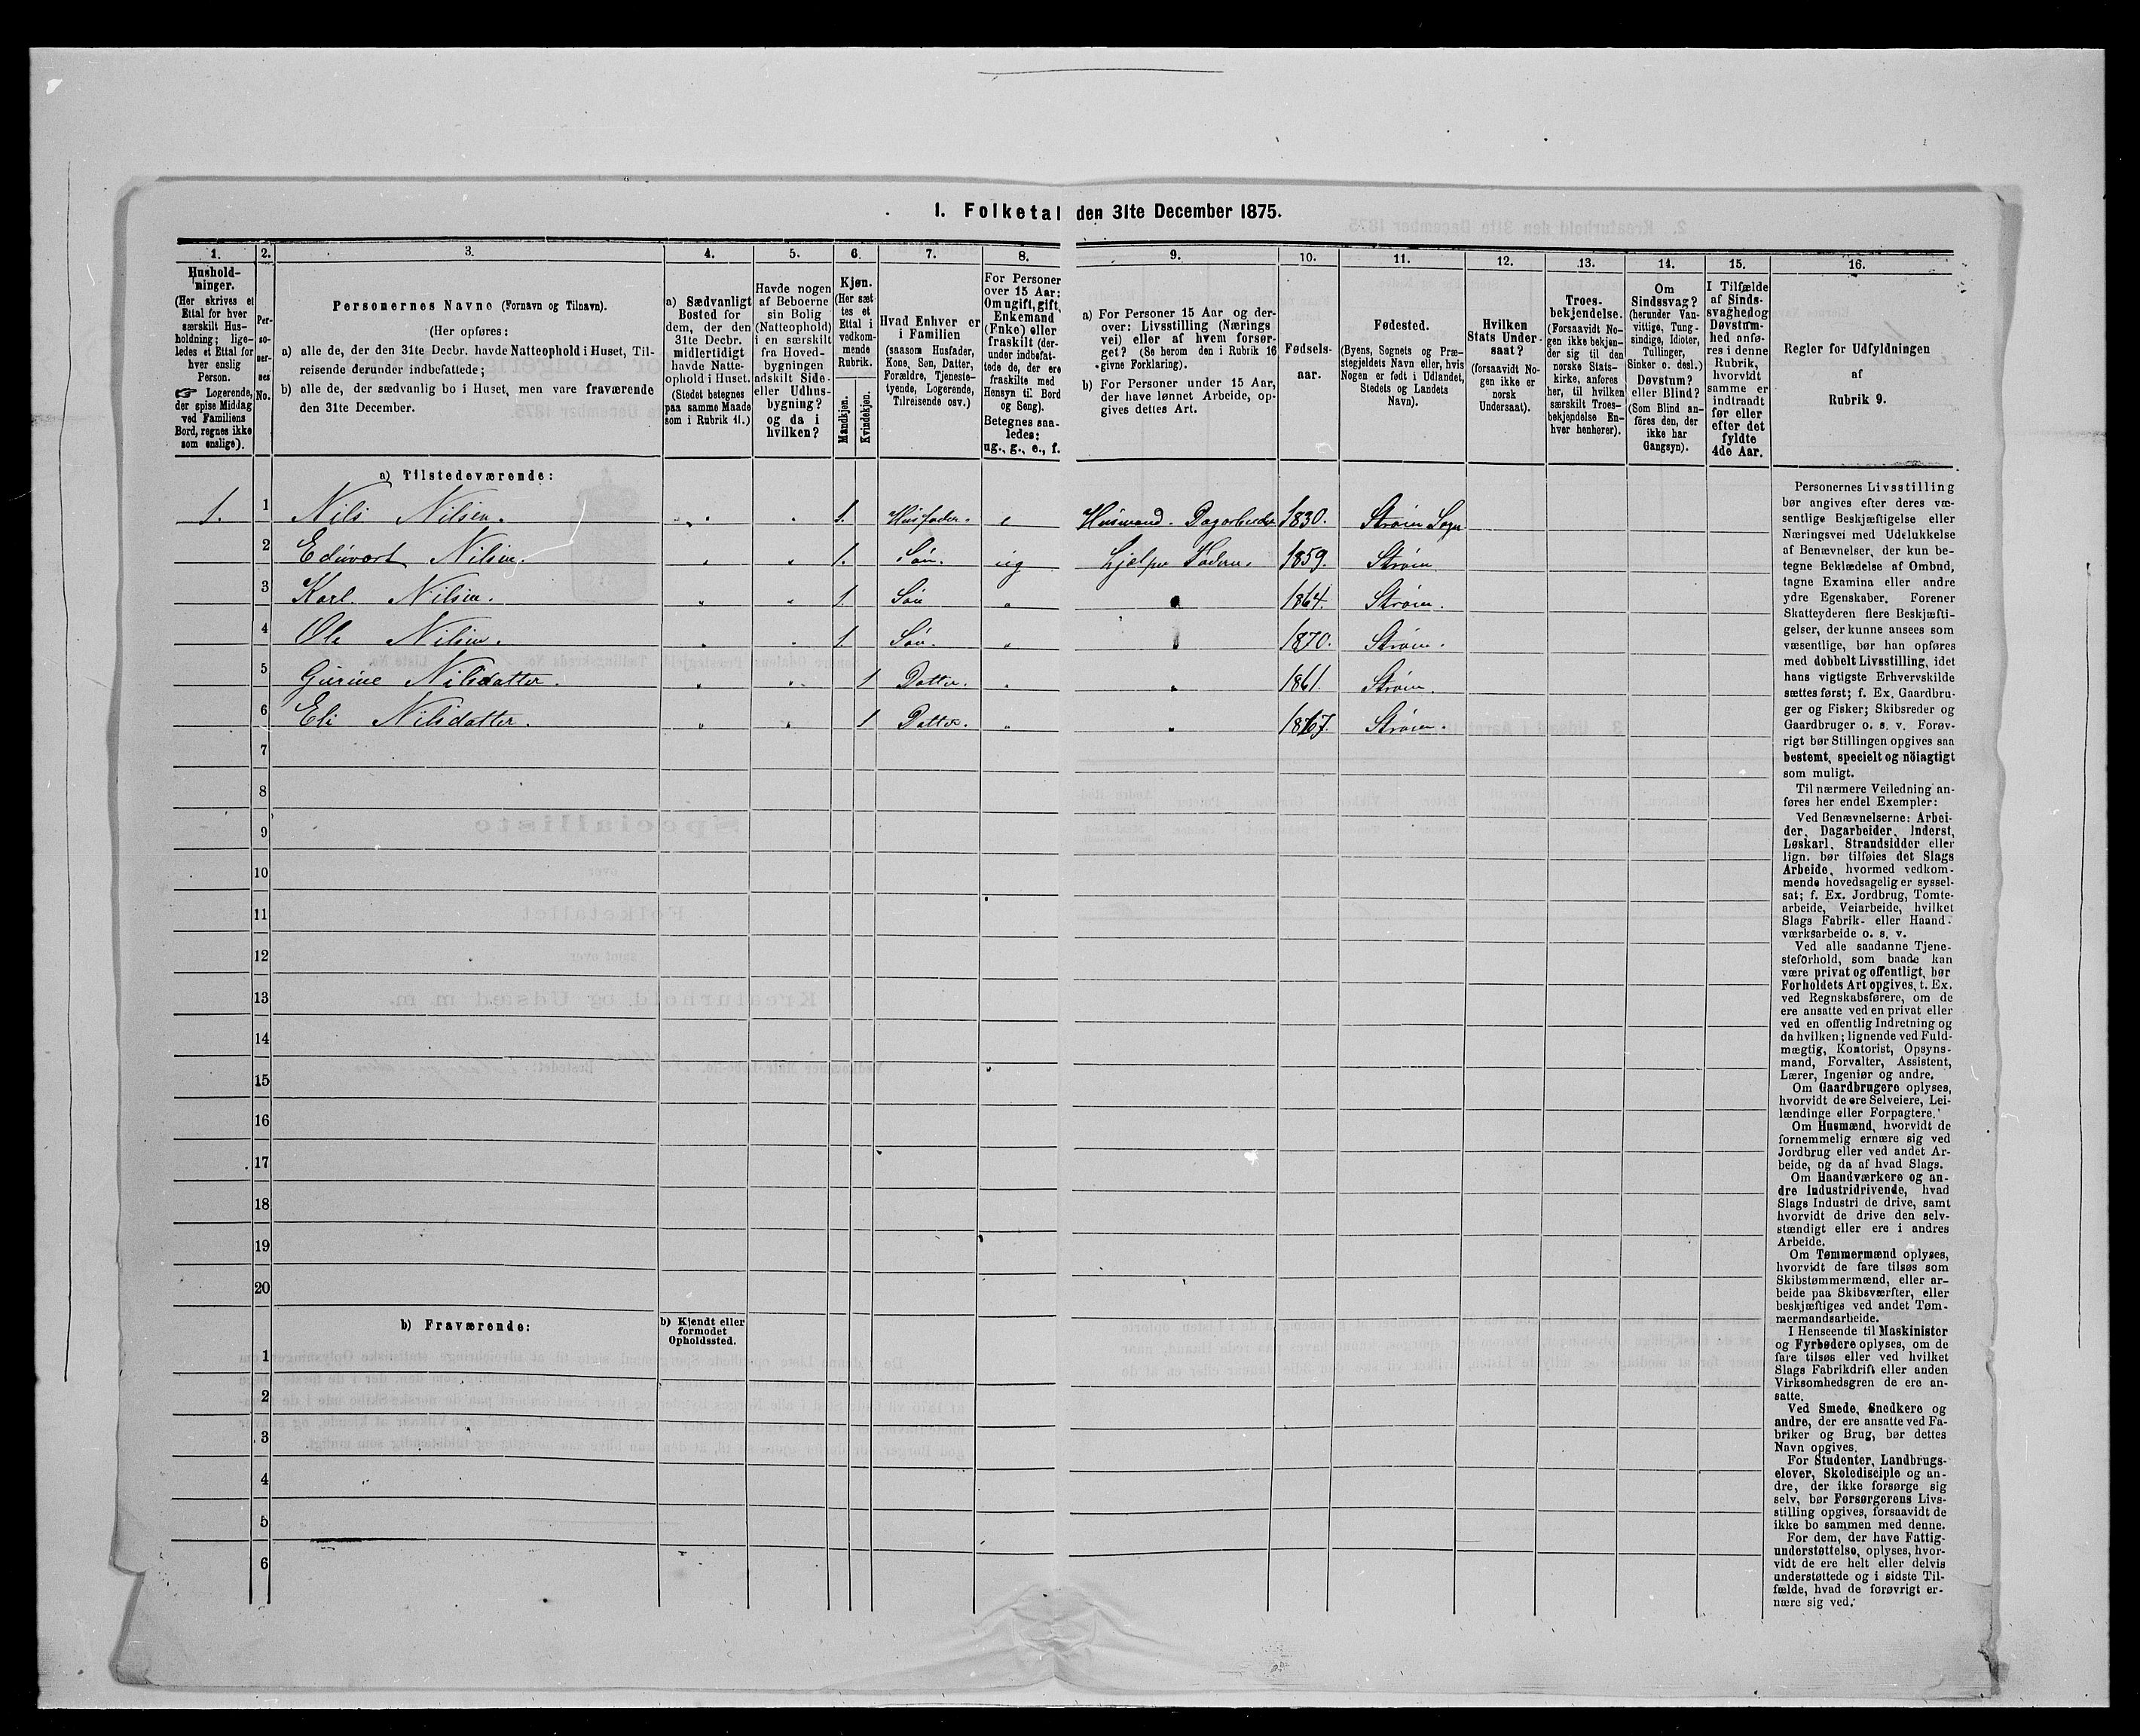 1. Folketal den 31te December 1875.
1. 2. 3. 4. 5. 6. 7. 8. 9. 10. 11. 12. 13. 14. 15. 16.
Hushold-
ninger.
(Her skrives et
Ettal for hver
særskilt Hus-
holdning; lige-
ledes et Ettal for
hver enslig
Person.
☞ Logerende,
der spise Middag
ved Familiens
Bord, regnes ikke
som enslige).
Per-
so-
ner-
nes
No.
Personernes Navne (Fornavn og Tilnavn).
(Her opføres:
a) alle de, der den 31te Decbr. havde Natteophold i Huset, Til-
reisende derunder indbefattede;
b) alle de, der sædvanlig bo i Huset, men vare fraværende
den 31te December.
a) Sædvanligt
Bosted for
dem, der den
31te Decbr.
midlertidigt
havde Natte-
ophold i Huset.
(Stedet betegnes
paa samme Maade
som i Rubrik 11.)
Havde nogen
af Beboerne
sin Bolig
(Natteophold)
i en særskilt
fra Hoved-
bygningen
adskilt Side-
eller Udhus-
bygning?
og da i
hvilken?
Kjøn.
(Her sæt-
tes et
Ettal i
vedkom-
mende
Rubrik.
Mandkjøn.
Kvindekjøn.
Hvad Enhver er
i Familien
(saasom Husfader,
Kone, Søn, Datter,
Forældre, Tjeneste-
tyende, Logerende,
Tilreisende osv.)
For Personer
over 15 Aar:
Om ugift, gift,
Enkemand
(Enke) eller
fraskilt (der-
under indbefat-
tede de, der ere
fraskilte med
Hensyn til Bord
og Seng).
Betegnes saa-
ledes:
ug., g., e., f.
a) For Personer 15 Aar og der-
over: Livsstilling (Nærings
vei) eller af hvem forsør-
get? (Se herom den i Rubrik 16
givne Forklaring).
b) For Personer under 15 Aar,
der have lønnet Arbeide, op-
gives dettes Art.
Fødsels-
aar.
Fødested.
(Byens, Sognets og Præ-
stegjeldets Navn eller, hvis
Nogen er født i Udlandet,
Stedets og Landets
Navn).
Hvilken
Stats Under-
saat?
(forsaavidt No-
gen ikke er
norsk
Undersaat).
Troes-
bekjendelse.
(Forsaavidt No-
gen ikke bekjen-
der sig til den
norske Stats-
kirke, anføres
her, til hvilken
særskilt Troes-
bekjendelse En-
hver henhører).
Om
Sindssvag?
(herunder Van-
vittige, Tung-
sindige, Idioter,
Tullinger,
Sinker o. desl.)
Døvstum?
eller Blind?
(Som Blind an-
føres den, der
ikke har
Gangsyn).
I Tilfælde
af Sinds-
svaghed og
Døvstum-
hed anfø-
res i denne
Rubrik,
hvorvidt
samme er
indtraadt
før eller
efter det
fyldte
4de Aar.
Regler for Udfyldningen
af
Rubrik 9.
a) Tilstedeværende:
1. 1 Nils Nilsen. " " 1. Husfader. e Husmand. Dagarbeider 1830. Strøm Sogn
2 Eduvart Nilsen. " " 1. Søn. ug Hjelper Faderen. 1859. Strøm
3 Karl Nilsen. " " 1. Søn " " 1864. Strøm.
4 Ole Nilsen. " " 1. Søn. " " 1870. Strøm.
5 Gurine Nilsdatter. " " 1 Datter. " " 1861. Strøm.
6 Eli Nilsdatter. " " 1 Datter. " " 1867. Strøm.
7
8
9
10
11
12
13
14
15
16
17
18
19
20
b) Fraværende:
b) Kjendt eller
formodet
Opholdssted.
1
2
3
4
5
6
Personernes Livsstilling
bør angives efter deres væ-
sentlige Beskjæftigelse eller
Næringsvei med Udelukkelse
af Benævnelser, der kun be-
tegne Beklædelse af Ombud,
tagne Examina eller andre
ydre Egenskaber. Forener
Skatteyderen flere Beskjæfti-
gelser, der kunne ansees som
væsentlige, bør han opføres
med dobbelt Livsstilling, idet
hans vigtigste Erhvervskilde
sættes først; f. Ex. Gaardbru-
ger og Fisker; Skibsreder og
Gaardbruger o. s. v. Forøv-
rigt bør Stillingen opgives saa
bestemt, specielt og nöiagtigt
som muligt.
Til nærmere Veiledning an-
føres her endel Exempler:
Ved Benævnelserne: Arbei-
der, Dagarbeider, Inderst,
Løskarl, Strandsidder eller
lign. bør tilføies det Slags
Arbeide, hvormed vedkom-
mende hovedsagelig er syssel-
sat; f. Ex. Jordbrug, Tomte-
arbeide, Veiarbeide, hvilket
Slags Fabrik- eller Haand-
værksarbeide o. s. v.
Ved alle saadanne Tjene-
steforhold, som baade kan
være privat og offentligt, bør
Forholdets Art opgives, t. Ex.
ved Regnskabsførere, om de
ere ansatte ved en privat eller
ved en offentlig Indretning og
da hvilken; lignende ved Fuld-
mægtig, Kontorist, Opsyns-
mand, Forvalter, Assistent,
Lærer, Ingeniør og andre.
Om Gaardbrugere oplyses,
hvorvidt de ere Selveiere, Lei-
lændinge eller Forpagtere.
Om Husmænd, hvorvidt de
fornemmelig ernære sig ved
Jordbrug eller ved andet Ar-
beide, og da af hvad Slags.
Om Haandværkere og an-
dre Industridrivende, hvad
Slags Industri de drive, samt
hvorvidt de drive den selv-
stændigt eller ere i andres
Arbeide.
Om Tømmermænd oplyses,
hvorvidt de fare tilsøs som
Skibstømmermænd, eller ar-
beide paa Skibsværfter, eller
beskjæftiges ved andet Tøm-
mermandsarbeide.
I Henseende til Maskinister
og Fyrbødere oplyses, om de
fare tilsøs eller ved hvilket
Slags Fabrikdrift eller anden
Virksomhedsgren de ere an-
satte.
Ved Smede, Snedkere og
andre, der ere ansatte ved Fa-
briker og Brug, bør dettes
Navn opgives.
For Studenter, Landbrugs-
elever, Skoledisciple og an-
dre, der ikke forsørge sig
selv, bør Forsørgerens Livs-
stilling opgives, forsaavidt de
ikke bo sammen med denne.
For dem, der have Fattig-
understøttelse, oplyses, hvor-
vidt de ere helt eller delvis
understøttede og i sidste Til-
fælde, hvad de forøvrigt er-
nære sig ved.